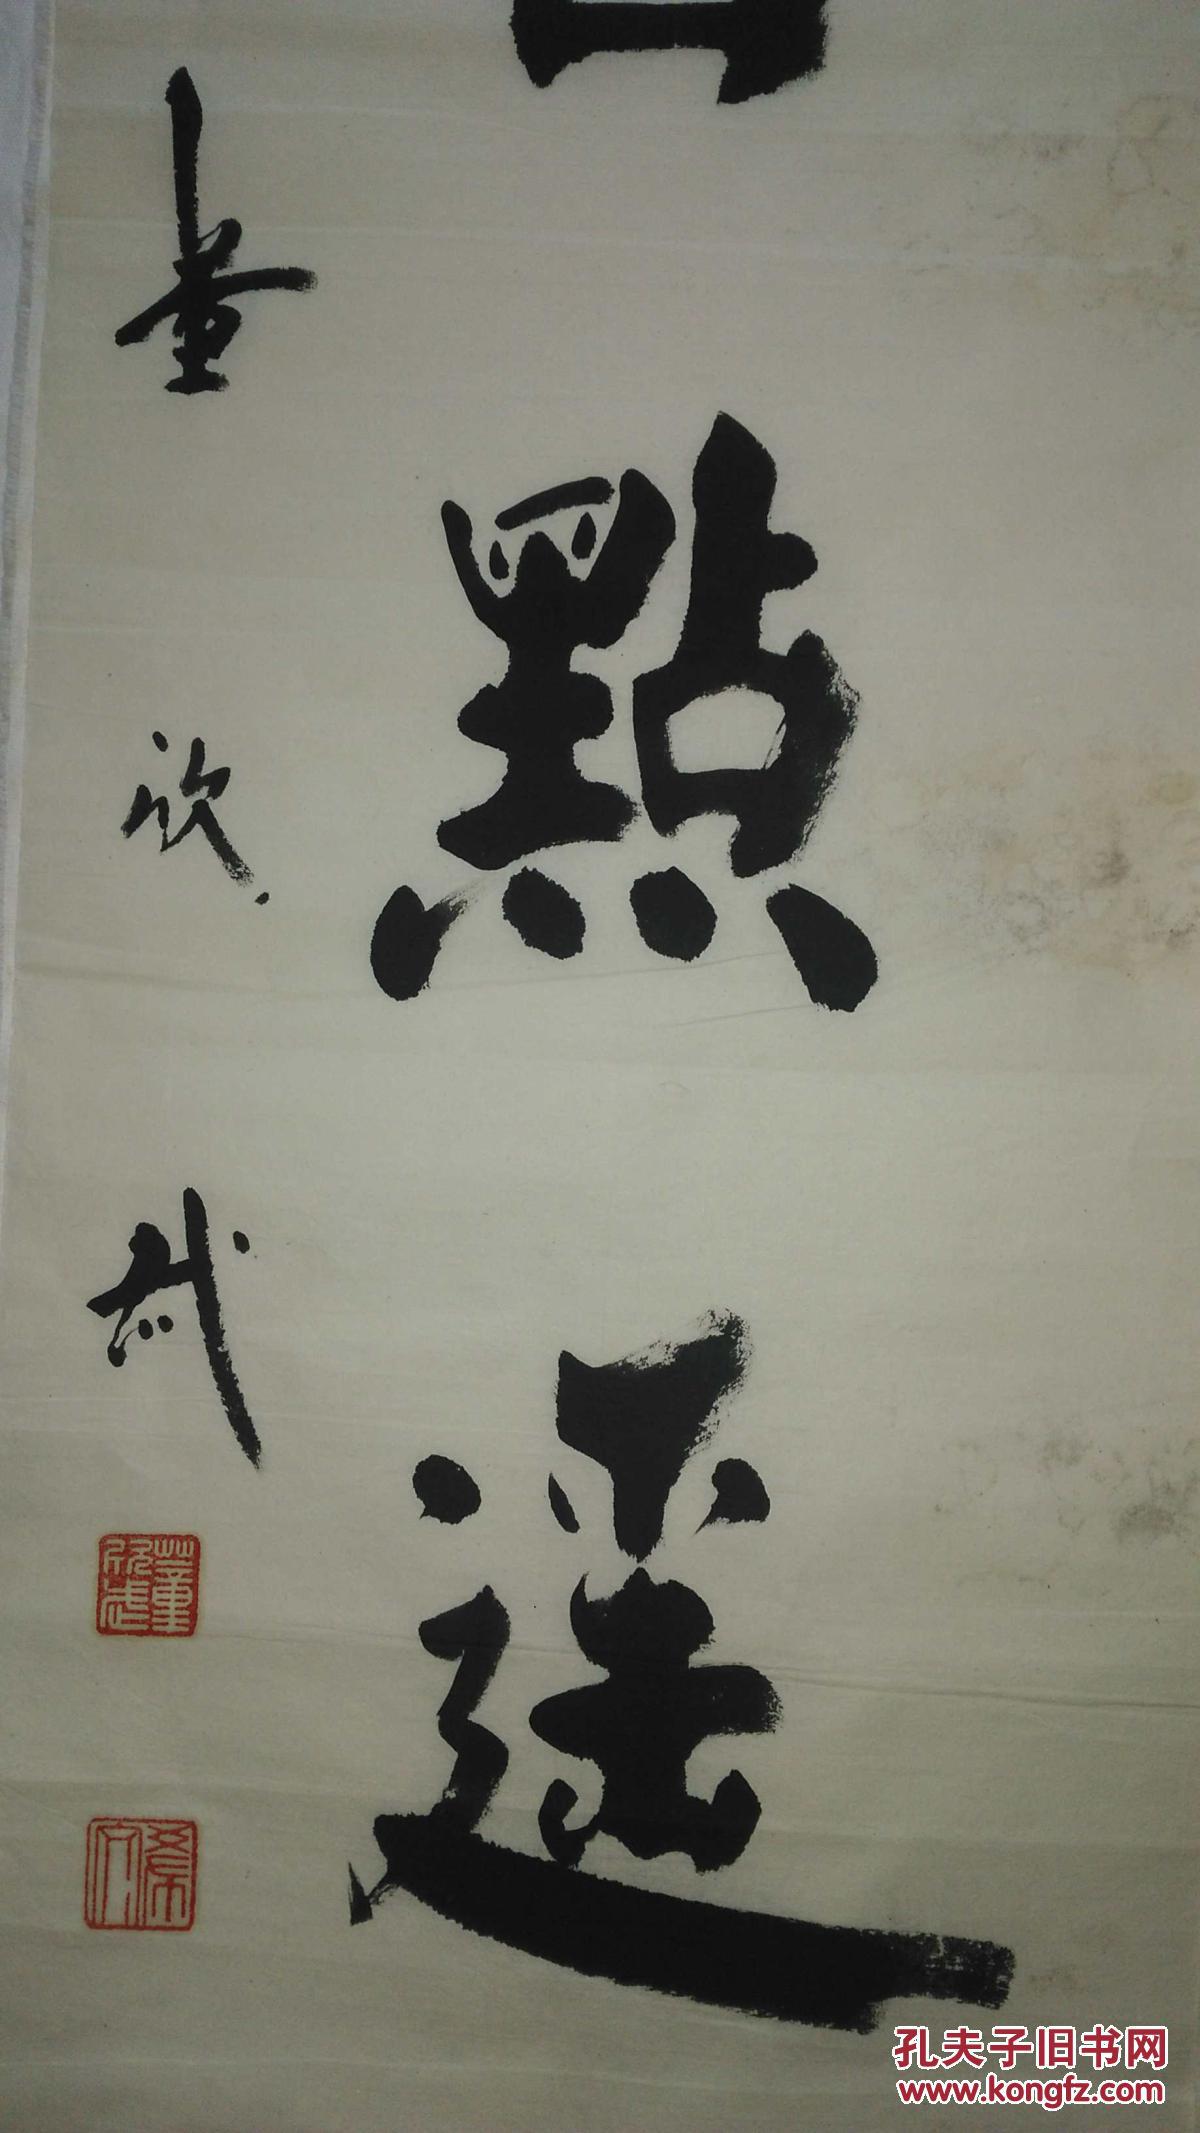 點遥
董欣武
董欣武
孔夫子旧书网
www.kongfz.com